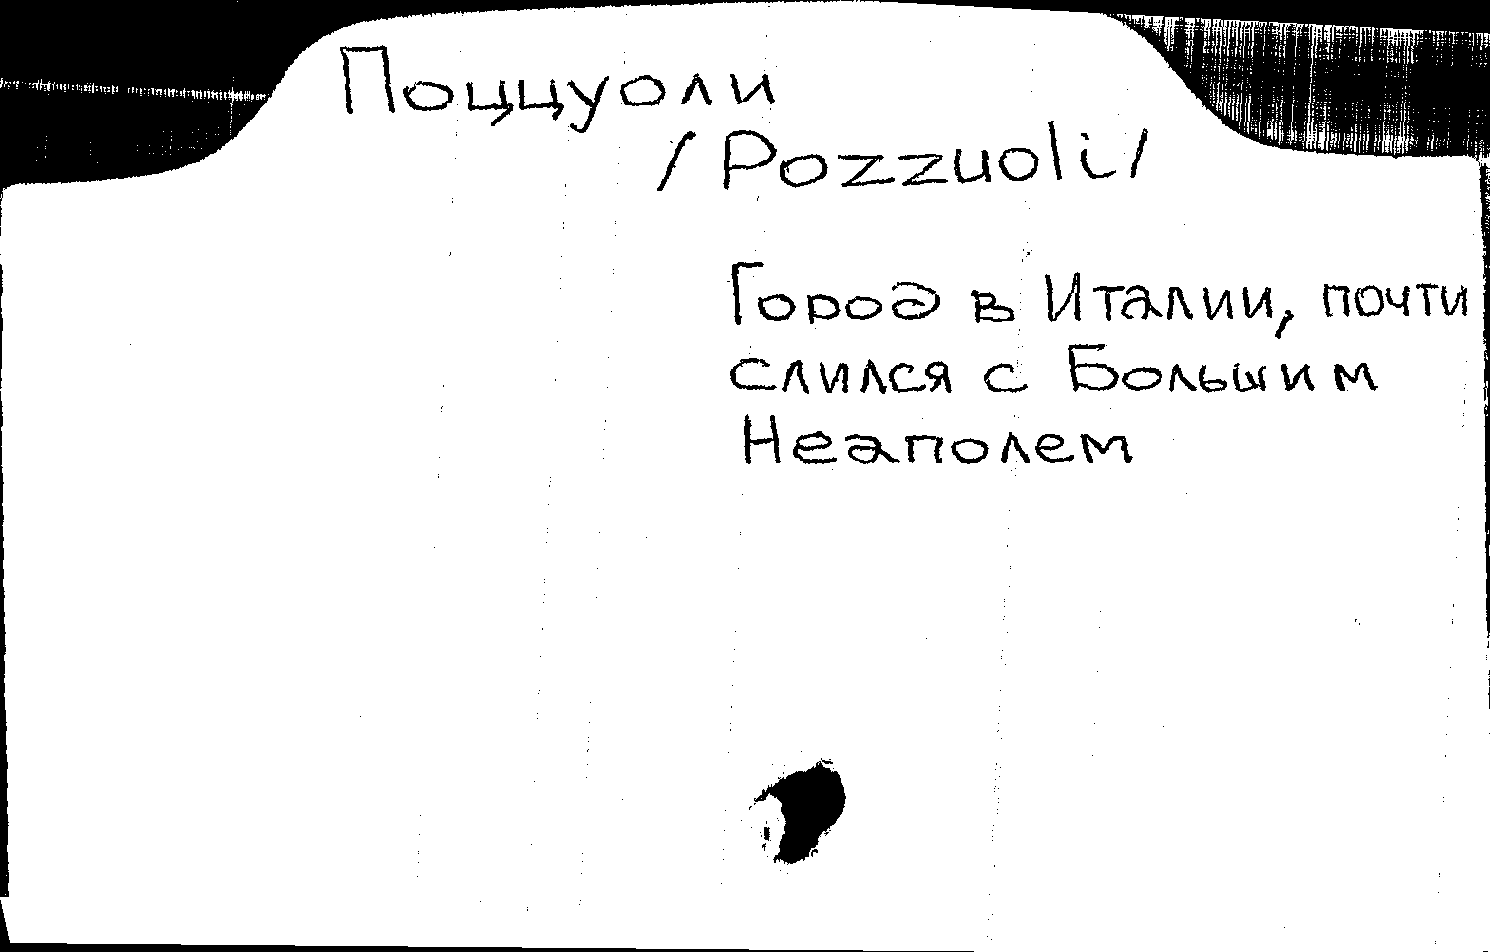 Поццуоли
/Pozzuoli/
Город в Италии, почти
слился с Большим
Неаполем